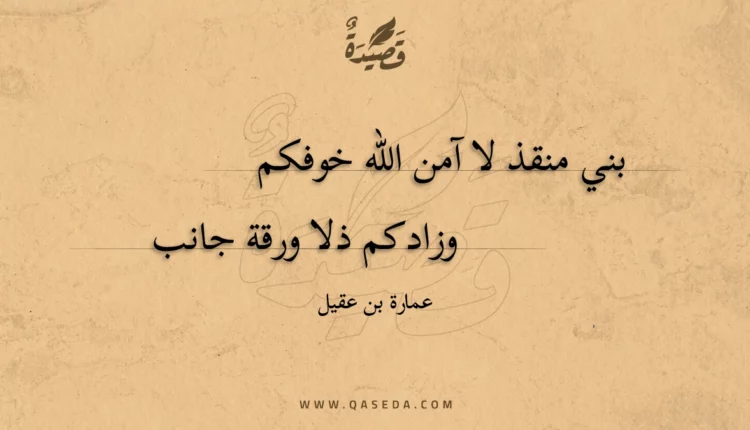 قَصِيْدَةٌ
بني منقذ لا آمن الله خوفكم
وزادكم ذلا ورقة جانب
عمارة بن عقيل
WWW.QASEDA.COM